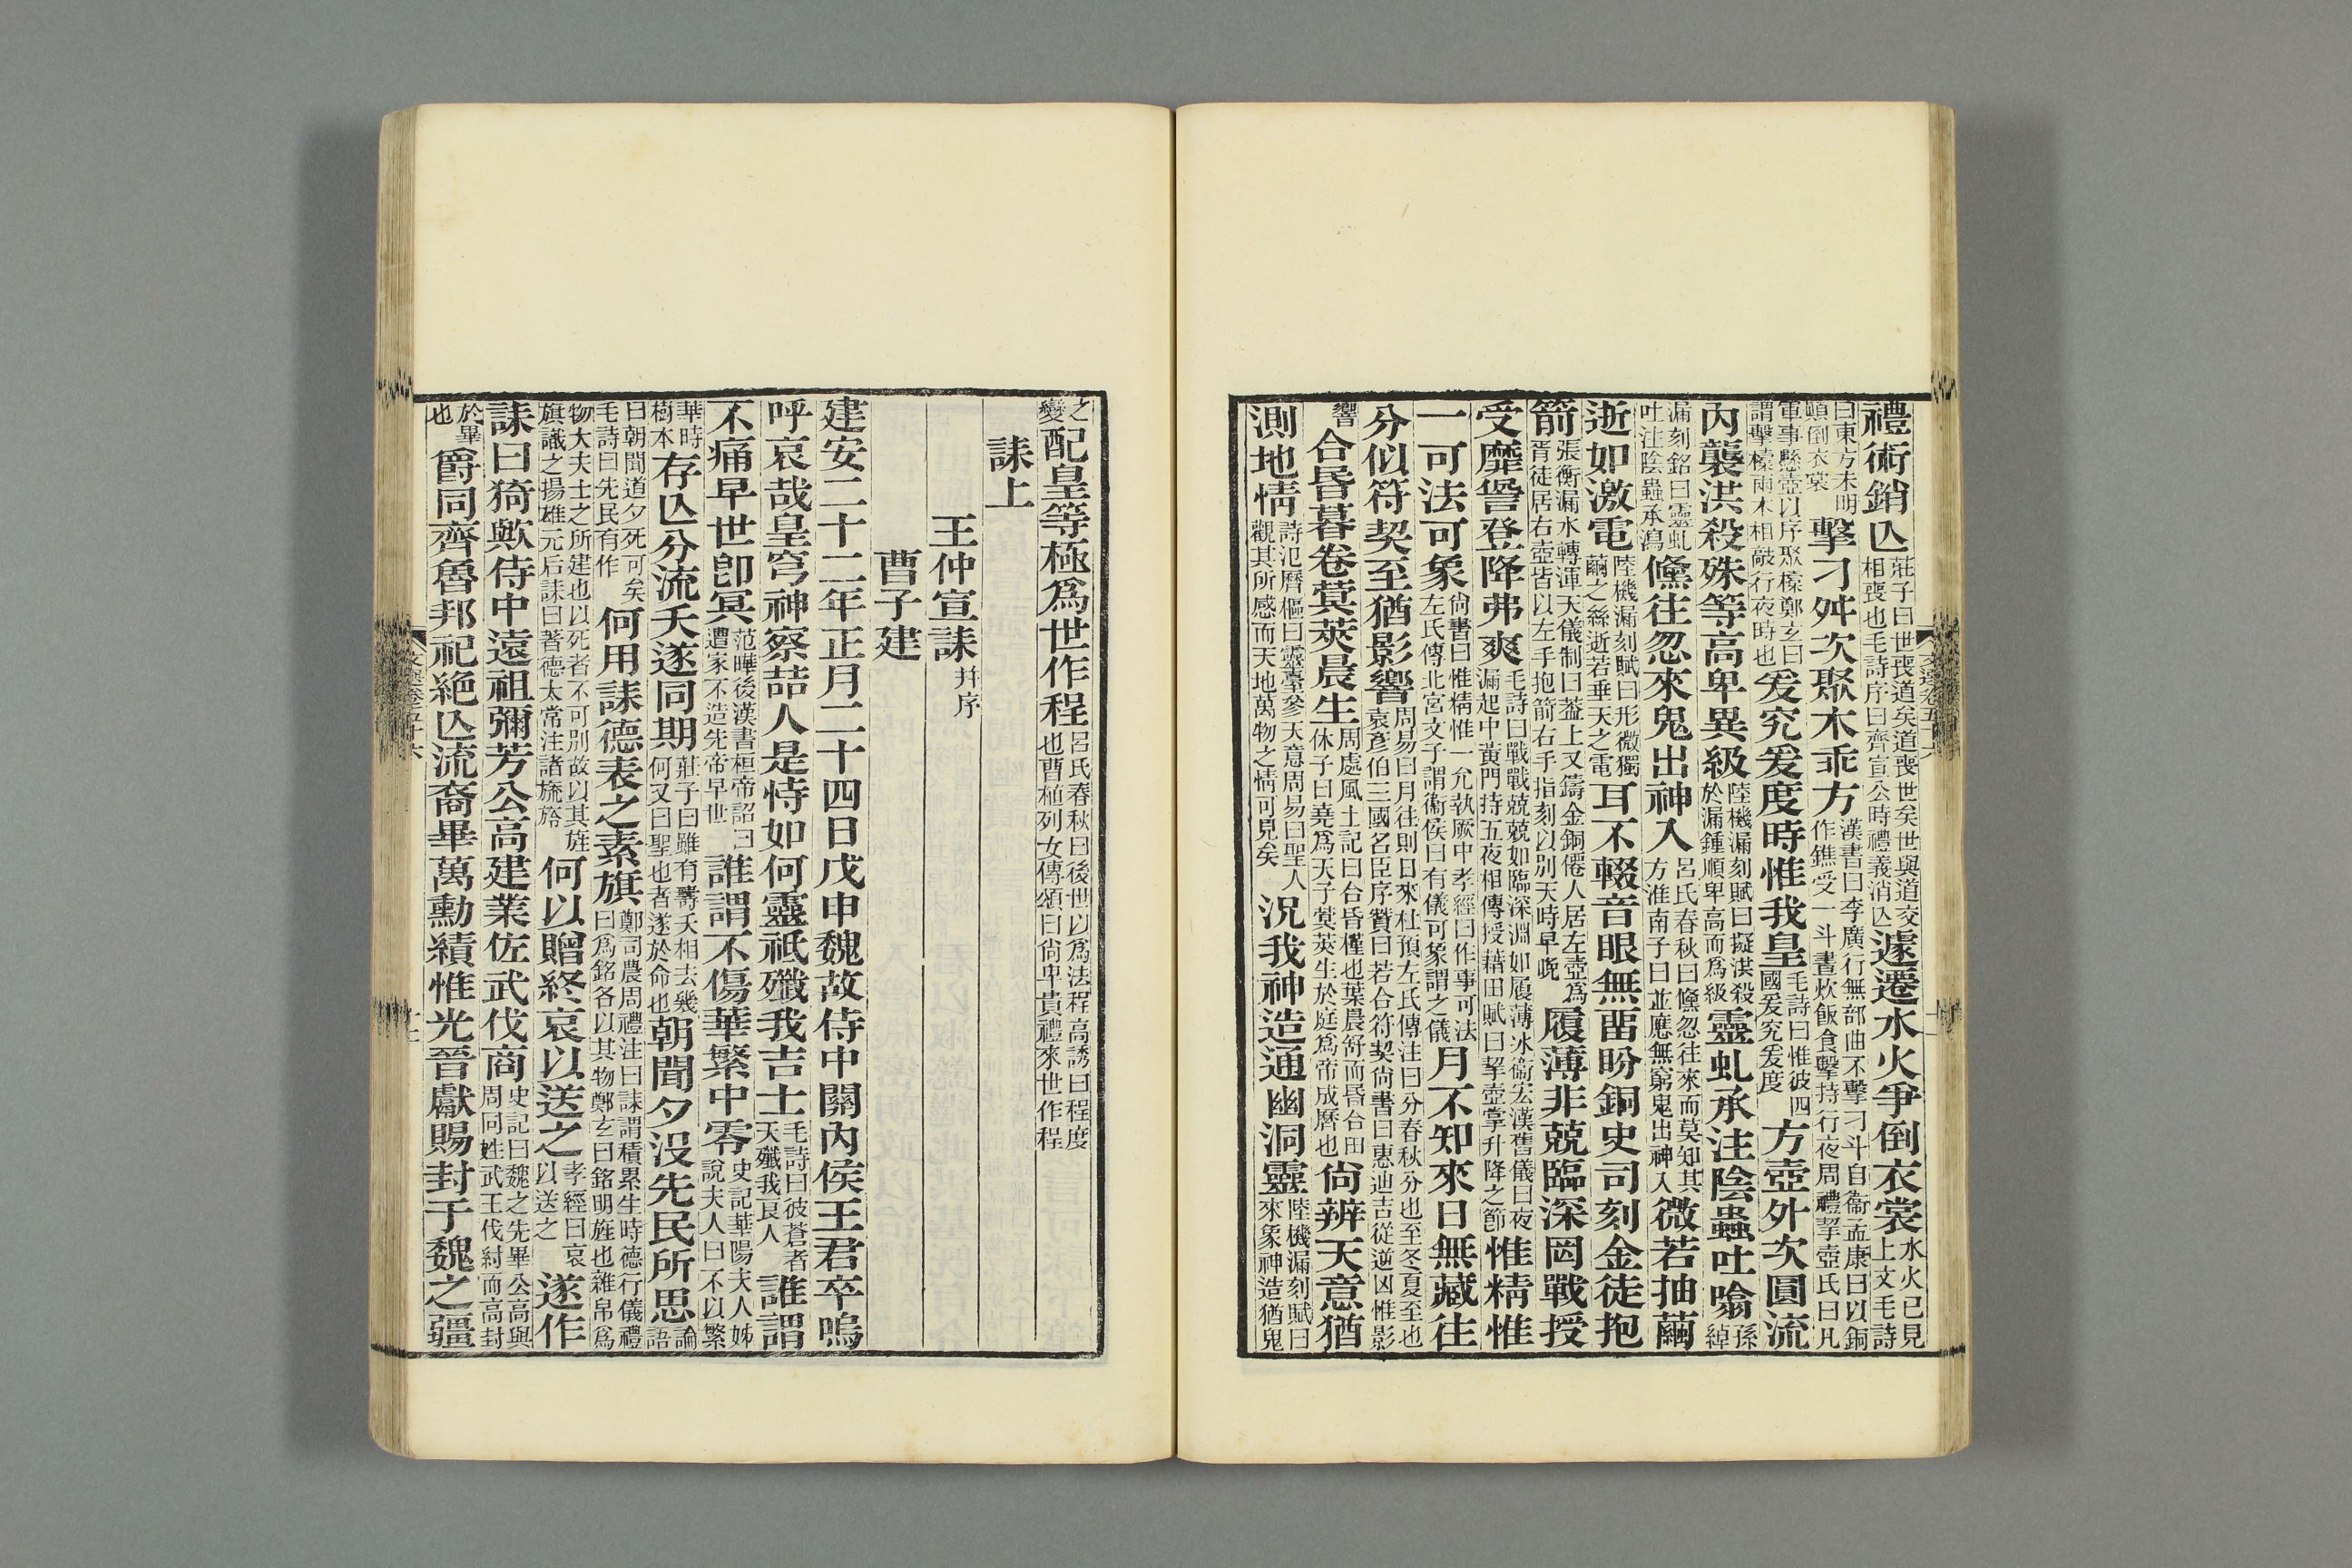 禮術銷亾莊子曰世喪道矣道喪世矣世與道交相喪也毛詩序曰齊宣公時禮義消亾遽遷水火爭倒衣裳水火已見上文毛詩
曰東方未明顚倒衣裳擊刁舛次聚木乖方漢書曰李廣行無部曲不擊刁斗自衞孟康曰以銅作鐎受一斗晝炊飯食擊持行夜周禮挈壺氏曰凡
軍事縣壺以序聚𣝔鄭玄曰謂擊𣝔兩木相敲行夜時也爰究爰度時惟我皇毛詩曰惟彼四國爰究爰度方壺外次圓流
內襲洪殺殊等高卑異級陸機漏刻賦曰擬洪殺於漏鍾順卑高而爲級靈虬承注陰蟲吐噏孫綽
漏刻銘曰靈虬吐注陰蟲承瀉儵往忽來鬼出神入呂氏春秋曰儵忽往來而莫知其方淮南子曰並應無窮鬼出神入微若抽繭
逝如激電陸機漏刻賦曰形微獨繭之絲逝若垂天之電耳不輟音眼無畱盼銅史司刻金徒抱
箭張衡漏水轉渾天儀制曰葢上又鑄金銅僊人居左壺爲胥徒居右壺皆以左手抱箭右手指刻以別天時早晚履薄非兢臨深罔戰授
受靡諐登降弗爽毛詩曰戰戰兢兢如臨深淵如履薄冰衞宏漢舊儀曰夜漏起中黃門持五夜相傳授藉田賦曰挈壺掌升降之節惟精惟
一可法可象尙書曰惟精惟一允執厥中孝經曰作事可法左氏傳北宮文子謂衞侯曰有儀可象謂之儀月不知來日無藏往
分似符契至猶影響周易曰月往則日來杜預左氏傳注曰分春秋分也至冬夏至也袁彥伯三國名臣序贊曰若合符契尙書曰惠迪吉從逆凶惟影
響合昏暮卷蓂莢晨生周處風土記曰合昏槿也葉晨舒而昏合田休子曰堯爲天子蓂莢生於庭爲帝成曆也尙辨天意猶
測地情詩氾曆樞曰靈臺參天意周易曰聖人觀其所感而天地萬物之情可見矣況我神造通幽洞靈陸機漏刻賦曰來象神造猶鬼
之變配皇等極爲世作程呂氏春秋曰後世以爲法程高誘曰程度也曹植列女傳頌曰尙卑貴禮來世作程
誄上
王仲宣誄并序
曹子建
建安二十二年正月二十四日戊申魏故侍中關內侯王君卒嗚
呼哀哉皇穹神察喆人是恃如何靈祗殲我吉士毛詩曰彼蒼者天殲我良人誰謂
不痛早世卽冥范曄後漢書桓帝詔曰遭家不造先帝早世誰謂不傷華繁中零史記華陽夫人姊說夫人曰不以繁
華時樹本存亾分流夭遂同期莊子曰雖有壽夭相去幾何又曰聖也者遂於命也朝聞夕没先民所思論語
曰朝聞道夕死可矣毛詩曰先民有作何用誄德表之素旗鄭司農周禮注曰誄謂積累生時德行儀禮曰爲銘各以其物鄭玄曰銘明旌也雜帛爲
物大夫士之所建也以死者不可別故以其旌旗識之揚雄元后誄曰著德太常注諸旒旍何以贈終哀以送之孝經曰哀以送之遂作
誄曰猗歟侍中遠祖彌芳公高建業佐武伐商史記曰魏之先畢公高與周同姓武王伐紂而高封
於畢也爵同齊魯邦祀絕亾流裔畢萬勳績惟光晉獻賜封于魏之疆